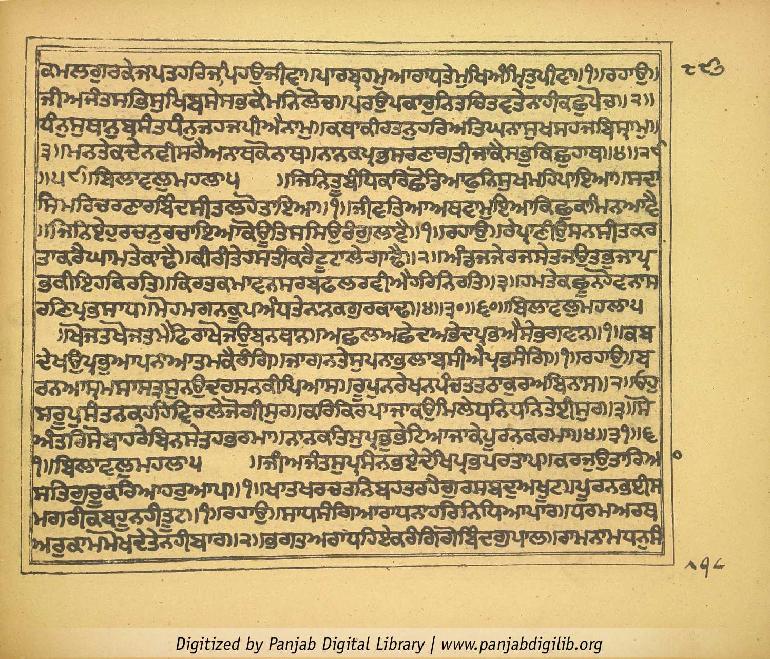 ਕਮਲਗੁਰਕੇਜਪਤਹਰਿਜਪਿਹਉਜੀਵਾ॥ਪਾਰਬ੍ਰਹਮੁਆਰਾਧਤੇਮੁਖਿਅੰਮ੍ਰਿਤੁਪੀਵਾ॥੧॥ਰਹਾਉ॥
ਜੀਅਜੰਤਸਭਿਸੁਖਿਬਸੇਸਭਕੈਮਨਿਲੋਚ॥ਪਰਉਪਕਾਰੁਨਿਤਚਿਤਵਤੇਨਾਹੀਕਛੁਪੋਚ॥੨॥
ਧੰਨੁਸੁਥਾਨੁਬਸੰਤਧੰਨੁਜਹਜਪੀਐਨਾਮੁ॥ਕਥਾਕੀਰਤਨੁਹਰਿਅਤਿਘਨਾਸੁਖਸਹਜਬਿਸ੍ਰਾਮੁ॥
੩॥ਮਨਤੇਕਦੇਨਵੀਸਰੈਅਨਾਥਕੋਨਾਥ॥ਨਾਨਕਪ੍ਰਭਸਰਣਾਗਤੀਜਾਕੈਸਭੁਕਿਛੁਹਾਥ॥੪॥੨੯
॥੫੯॥ਬਿਲਾਵਲੁਮਹਲਾ੫ ॥ਜਿਨਿਤੂਬੰਧਿਕਰਿਛੋਡਿਆਫੁਨਿਸੁਖਮਹਿਪਾਇਆ॥ਸਦਾ
ਸਿਮਰਿਚਰਣਾਰਬਿੰਦਸੀਤਲਹੋਤਾਇਆ॥੧॥ਜੀਵਤਿਆਅਥਵਾਮੁਇਆਕਿਛੁਕਾਮਿਨਆਵੈ
॥ਜਿਨਿਏਹੁਰਚਨੁਰਚਾਇਆਕੋਊਤਿਸਸਿਉਰੰਗੁਲਾਵੈ॥੧॥ਰਹਾਉ॥ਰੇਪ੍ਰਾਣੀਉਸਨਸੀਤਕਰ
ਤਾਕਰੈਘਾਮਤੇਕਾਢੈ॥ਕੀਰੀਤੇਹਸਤੀਕਰੈਟੂਟਾਲੇਗਾਢੈ॥੨॥ਅੰਡਜਜੇਰਜਸੇਤਜਉਤਭੁਜਾਪ੍ਰ
ਭਕੀਇਹਕਿਰਤਿ॥ਕਿਰਤਕਮਾਵਨਸਰਬਫਲਰਵੀਐਹਰਿਨਿਰਤਿ॥੩॥ਹਮਤੇਕਛੂਨਹੋਵਨਾਸ
ਰਣਿਪ੍ਰਭਸਾਧ॥ਮੋਹਮਗਨਕੂਪਅੰਧਤੇਨਾਨਕਗੁਰਕਾਢ॥੪॥੩੦॥੬੦॥ਬਿਲਾਵਲੁਮਹਲਾ੫
॥ਖੋਜਤਖੋਜਤਮੈਫਿਰਾਖੋਜਉਬਨਥਾਨ॥ਅਛਲਅਛੇਦਅਭੇਦਪ੍ਰਭਐਸੇਭਗਵਾਨ॥੧॥ਕਬ
ਦੇਖਉਪ੍ਰਭੁਆਪਨਾਆਤਮਕੈਰੰਗਿ॥ਜਾਗਨਤੇਸੁਪਨਾਭਲਾਬਸੀਐਪ੍ਰਭਸੰਗਿ॥੧॥ਰਹਾਉ॥ਬ
ਰਨਆਸ੍ਰਮਸਾਸਤ੍ਰਸੁਨਉਦਰਸਨਕੀਪਿਆਸ॥ਰੂਪੁਨਰੇਖਨਪੰਚਤਤਠਾਕੁਰਅਬਿਨਾਸ॥੨॥ਓਹੁ
ਸਰੂਪੁਸੰਤਨਕਹਹਿਵਿਰਲੇਜੋਗੀਸੁਰ॥ਕਰਿਕਿਰਪਾਜਾਕਉਮਿਲੇਧਨਿਧਨਿਤੇਈਸੁਰ॥੩॥ਸੋ
ਅੰਤਰਿਸੋਬਾਹਰੇਬਿਨਸੇਤਹਭਰਮਾ॥ਨਾਨਕਤਿਸੁਪ੍ਰਭੁਭੇਟਿਆਜਾਕੇਪੂਰਨਕਰਮਾ॥੪॥੩੧॥੬
੧॥ਬਿਲਾਵਲੁਮਹਲਾ੫ ॥ਜੀਅਜੰਤਸੁਪ੍ਰਸੰਨਭਏਦੇਖਿਪ੍ਰਭਪਰਤਾਪ॥ਕਰਜੁਉਤਾਰਿਆ
ਸਤਿਗੁਰੂਕਰਿਆਹਰੁਆਪ॥੧॥ਖਾਤਖਰਚਤਨਿਬਹਤਰਹੈਗੁਰਸਬਦੁਅਖੂਟ॥ਪੂਰਨਭਈਸ
ਮਗਰੀਕਬਹੂਨਹੀਤੂਟ॥੧॥ਰਹਾਉ॥ਸਾਧਸੰਗਿਆਰਾਧਨਾਹਰਿਨਿਧਿਆਪਾਰ॥ਧਰਮਅਰਥ
ਅਰੁਕਾਮਮੋਖਦੇਤੇਨਹੀਬਾਰ॥੨॥ਭਗਤਅਰਾਧਹਿਏਕਰੰਗਿਗੋਬਿੰਦਗੁਪਾਲ॥ਰਾਮਨਾਮਧਨੁਸੰ
Digitized by Panjab Digital Library | www.panjabdigilib.org